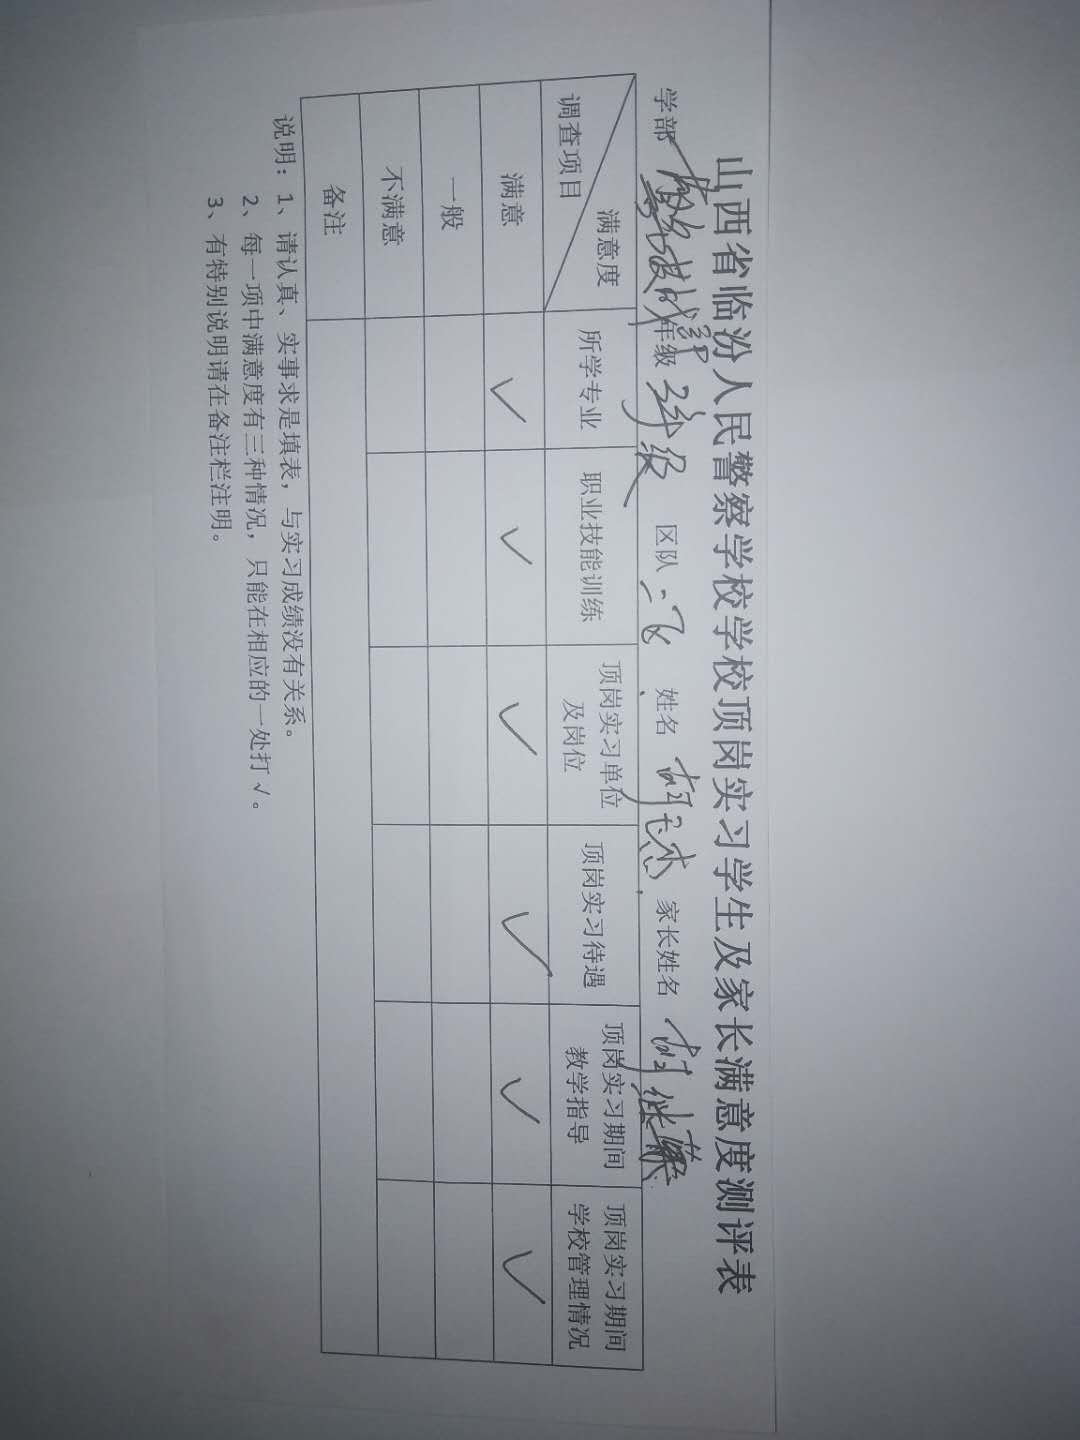 山西省临汾人民警察学校学校顶岗实习学生及家长满意度测评表
学部 年级 2年级 区队 一 姓名 胡志杰 家长姓名 胡继
满意度 所学专业 职业技能训练 顶岗实习单位及岗位 顶岗实习待遇 顶岗实习期间教学指导 顶岗实习期间学校管理情况
调查项目
满意 ✓ ✓ ✓ ✓ ✓ ✓
一般
不满意
备注
说明：1、请认真、实事求是填表，与实习成绩没有关系。
2、每一项中满意度有三种情况，只能在相应的一处打√。
3、有特别说明请在备注栏注明。